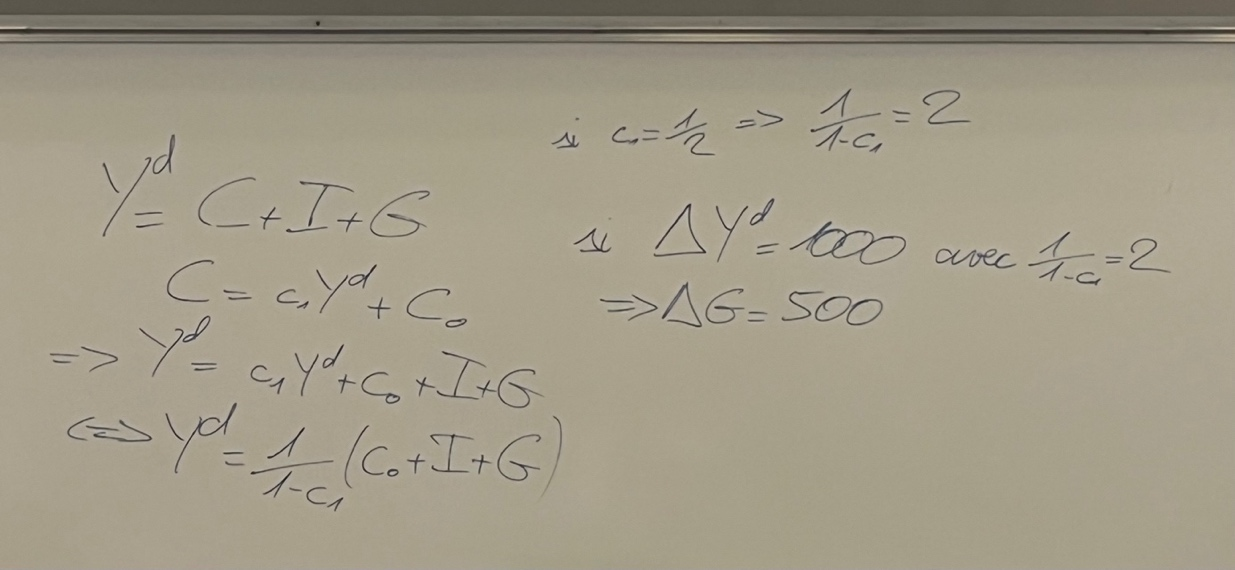 Y^d = C + I + G
C = c₁Y^d + C₀
=> Y^d = c₁Y^d + C₀ + I + G
<=> Y^d = 1/(1-c₁) (C₀ + I + G)
si c₁ = 1/2 => 1/(1-c₁) = 2
si ΔY^d = 1000 avec 1/(1-c₁) = 2
=> ΔG = 500